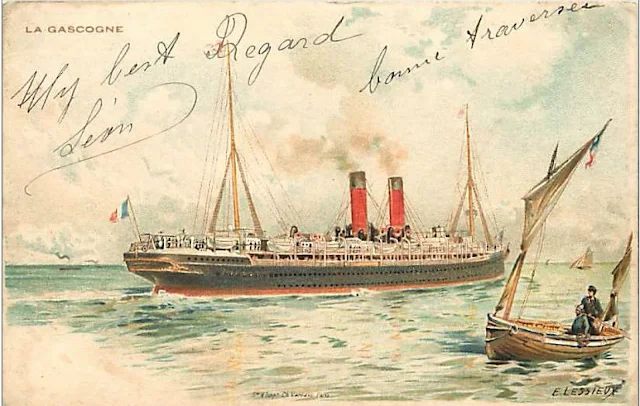 LA GASCOGNE
My best Regard
bonne traversée
Léon
E. LESSIEUX